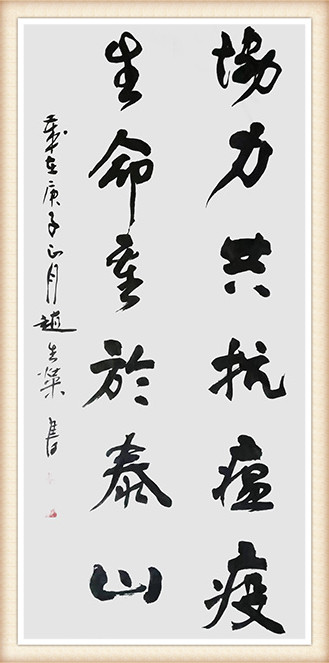 協力共抗瘟疫
生命重於泰山
歲在庚子正月趙生燦書